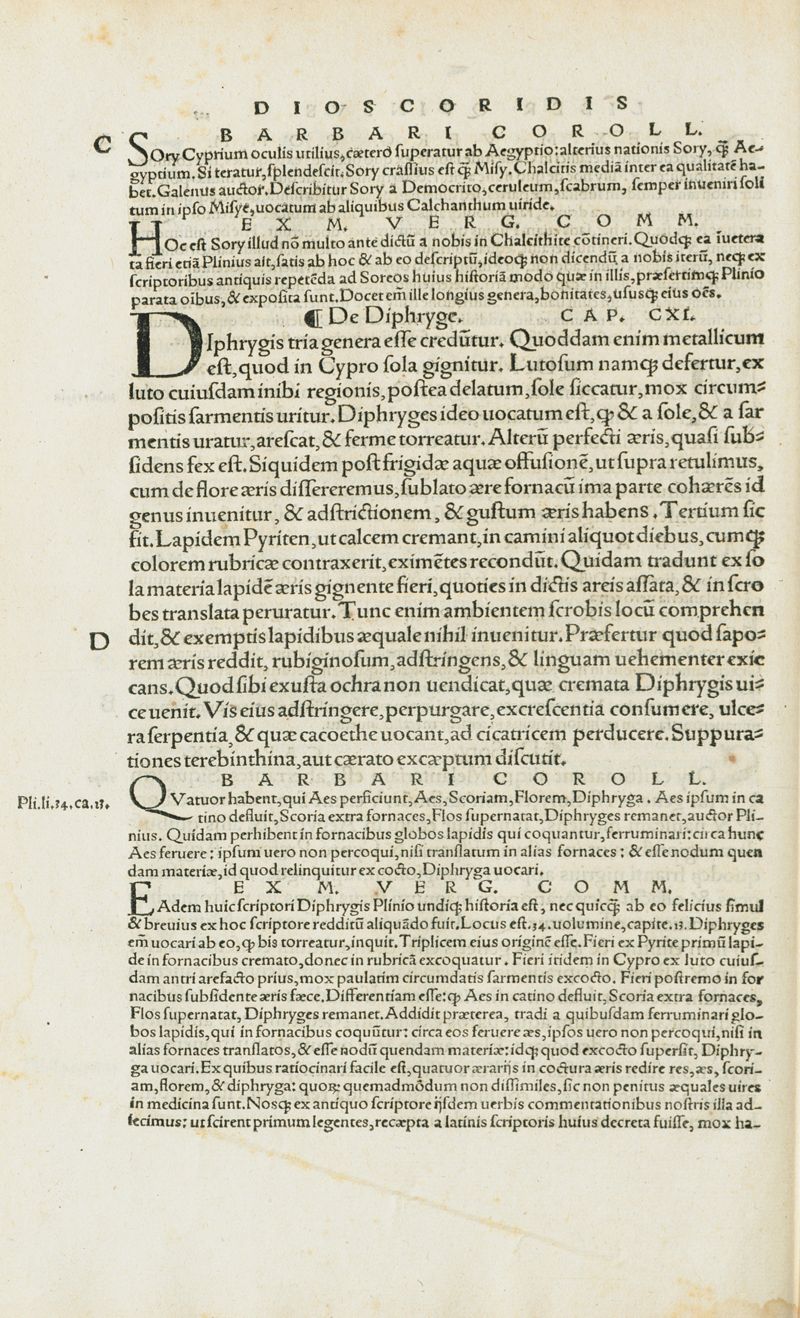 DIOSCORIDIS
BARBARI COROLL.
C
SOry Cyprium oculis utilius, cætero superatur ab Aegyptio: alterius nationis Sory, ꝙ̃ Ae-
gyptium. Si teratur, splendescit. Sory crassius est ꝙ̃ Misy. Chalcitis mediã inter ea qualitatẽ ha-
bet. Galenus auctor. Describitur Sory a Democrito, ceruleum, scabrum, semper inueniri soli
tum in ipso Misye, uocatum ab aliquibus Calchanthum uiride.
EXM. VERG. COMM.
HOc est Sory illud nõ multo ante dictũ a nobis in Chalcithite cõtineri. Quodqꝫ ea iuetera
ta fieri etiã Plinius ait, satis ab hoc & ab eo descriptũ, ideoqꝫ non dicendũ a nobis iterũ, neqꝫ ex
scriptoribus antiquis repetẽda ad Soreos huius historiã modo quæ in illis, præsertimqꝫ Plinio
parata oĩbus, & exposita sunt. Docet em̃ ille longius genera, bonitates, ususqꝫ eius oẽs.
¶ De Diphryge. CAP. CXI.
DIphrygis tria genera esse credũtur. Quoddam enim metallicum
est, quod in Cypro sola gignitur. Lutosum namqꝫ defertur, ex
luto cuiusdam inibi regionis, postea delatum, sole siccatur, mox circum-
positis sarmentis uritur. Diphryges ideo uocatum est, ꝙ & a sole, & a sar
mentis uratur, arescat, & ferme torreatur. Alterũ perfecti æris, quasi sub-
sidens fex est. Siquidem post frigidæ aquæ offusionẽ, ut supra retulimus,
cum de flore æris differeremus, sublato ære fornacũ ima parte cohærẽs id
genus inuenitur, & adstrictionem, & gustum æris habens. Tertium sic
fit. Lapidem Pyriten, ut calcem cremant, in camini aliquot diebus, cumqꝫ
colorem rubricæ contraxerit, eximẽtes recondũt. Quidam tradunt ex so
la materia lapidẽ æris gignente fieri, quoties in dictis areis assata, & in scro
bes translata peruratur. Tunc enim ambientem scrobis locũ comprehen
D
dit, & exemptis lapidibus æquale nihil inuenitur. Præfertur quod sapo-
rem æris reddit, rubiginosum, adstringens, & linguam uehementer exic
cans. Quod sibi exusta ochra non uendicat, quæ cremata Diphrygis ui-
ce uenit. Vis eius adstringere, perpurgare, excrescentia consumere, ulce-
ra serpentia, & quæ cacoethe uocant, ad cicatricem perducere. Suppura-
tiones terebinthina, aut cærato excæptum discutit.
BARBARI COROLL.
Pli. li. 34. ca. 13.
QVatuor habent, qui Aes perficiunt, Aes, Scoriam, Florem, Diphryga. Aes ipsum in ca
tino defluit, Scoria extra fornaces, Flos supernatat, Diphryges remanet, auctor Pli-
nius. Quidam perhibent in fornacibus globos lapidis qui coquantur, ferruminari: circa hunc
Aes feruere: ipsum uero non percoqui, nisi translatum in alias fornaces: & esse nodum quen
dam materiæ, id quod relinquitur ex cocto, Diphryga uocari.
EXM. VERG. COMM.
EAdem huic scriptori Diphrygis Plinio undiqꝫ historia est, nec quicqꝫ ab eo felicius simul
& breuius ex hoc scriptore redditũ aliquãdo fuit. Locus est. 34. uolumine, capite. 13. Diphryges
em̃ uocari ab eo, ꝙ bis torreatur, inquit. Triplicem eius originẽ esse. Fieri ex Pyrite primũ lapi-
de in fornacibus cremato, donec in rubricã excoquatur. Fieri itidem in Cypro ex luto cuius-
dam antri arefacto prius, mox paulatim circumdatis sarmentis excocto. Fieri postremo in for
nacibus subsidente æris fæce. Differentiam esse: ꝙ Aes in catino defluit, Scoria extra fornaces,
Flos supernatat, Diphryges remanet. Addidit præterea, tradi a quibusdam ferruminari glo-
bos lapidis, qui in fornacibus coquũtur: circa eos feruere æs, ipsos uero non percoqui, nisi in
alias fornaces translatos, & esse nodũ quendam materiæ: idqꝫ quod excocto supersit, Diphry-
ga uocari. Ex quibus ratiocinari facile est, quatuor ærarijs in coctura æris redire res, æs, scori-
am, florem, & diphryga: quoꝝ quemadmõdum non dissimiles, sic non penitus æquales uires
in medicina sunt. Nosqꝫ ex antiquo scriptore ijsdem uerbis commentationibus nostris illa ad-
iecimus: ut scirent primum legentes, recæpta a latinis scriptoris huius decreta fuisse, mox ha-